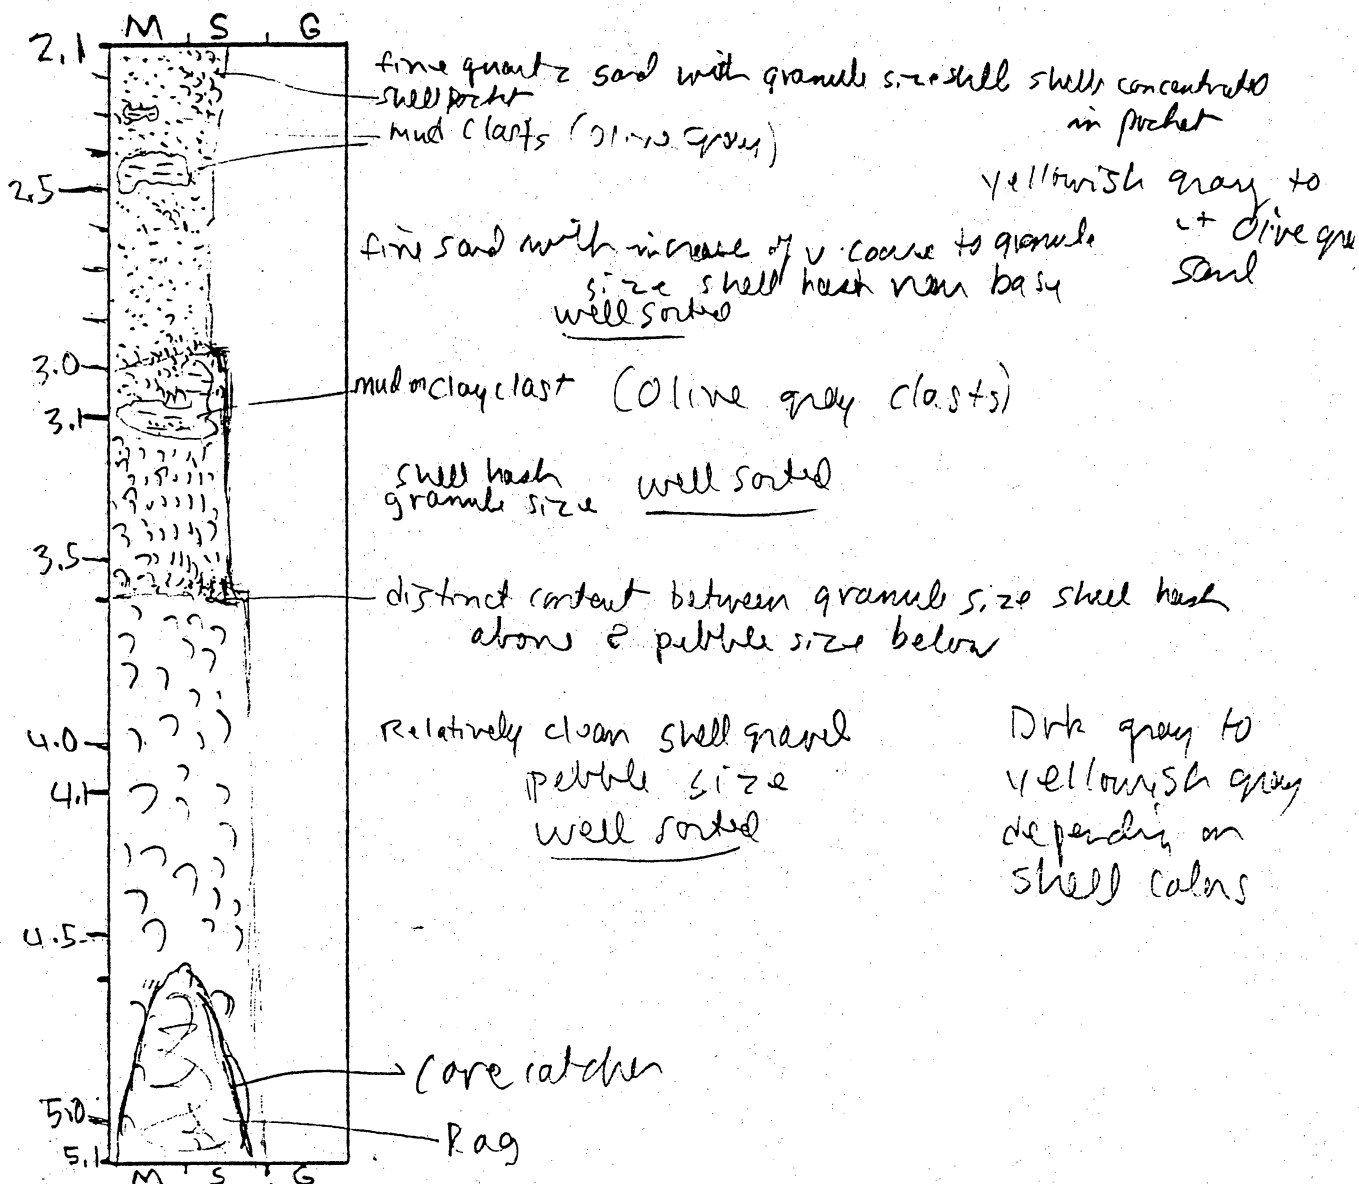 M S G
2.1
fine quartz sand with granule size shell shells concentrated
in pocket
shell pocket
mud clasts (olive gray)
2.5
yellowish gray to
lt olive gray
sand
fine sand with increase of v. coarse to granule
size shell hash near base
well sorted
3.0
mud or clay clast (Olive gray clasts)
3.1
shell hash
granule size well sorted
3.5
distinct contact between granule size shell hash
above & pebble size below
Relatively clean shell gravel
pebble size
well sorted
Drk gray to
yellowish gray
depending on
shell colors
4.0
4.1
4.5
Core catcher
5.0
Rag
5.1
M S G